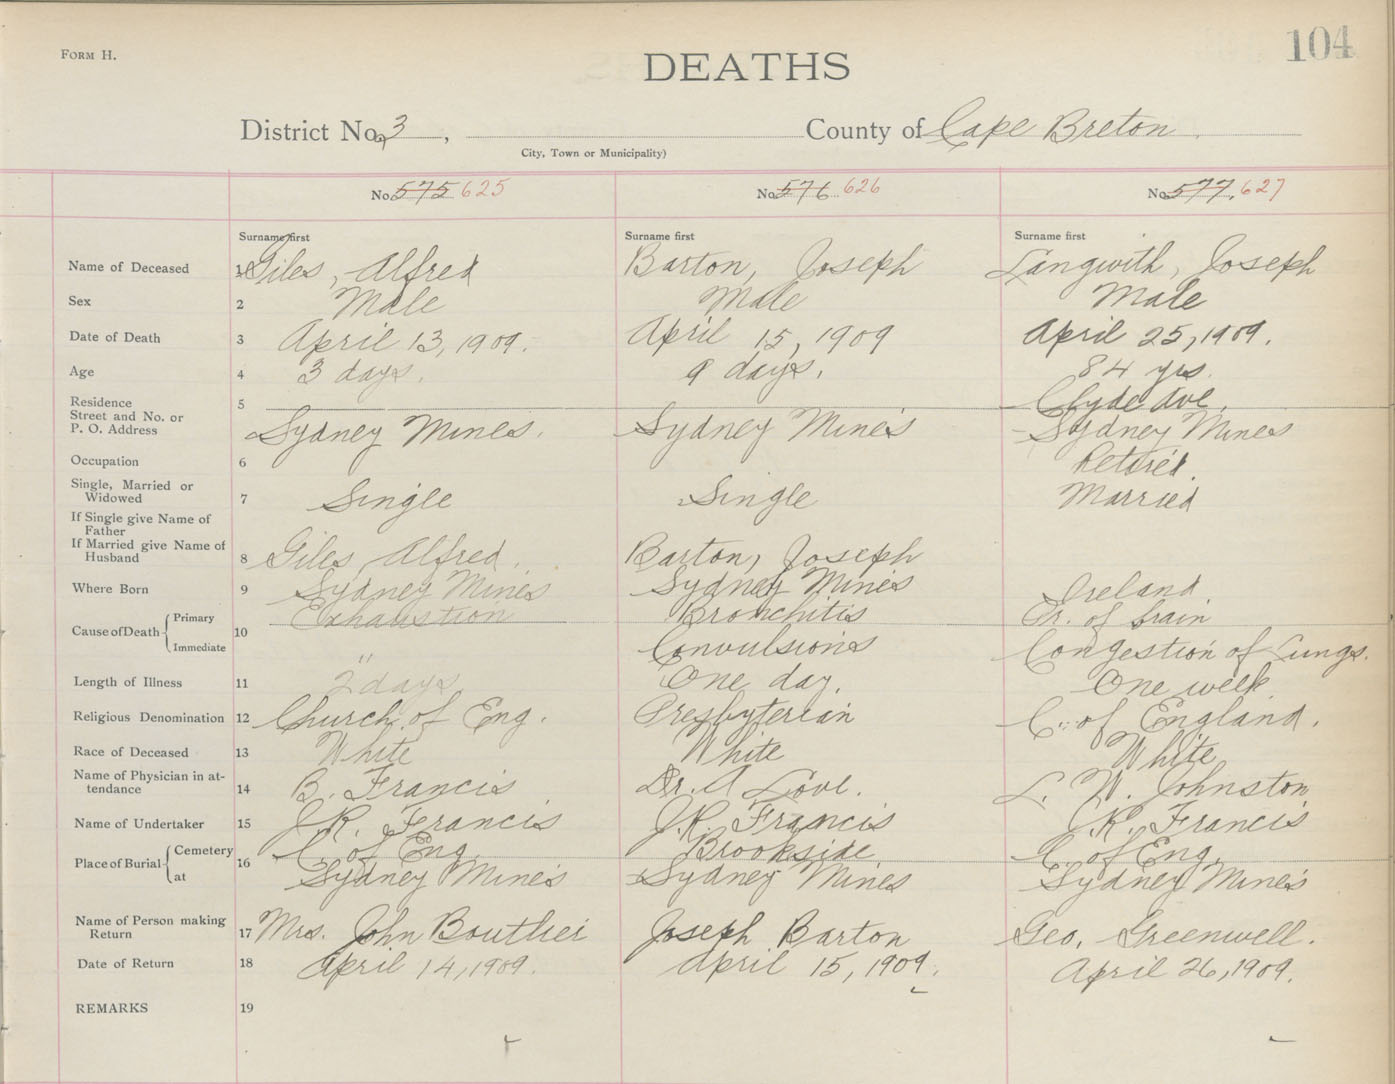 FORM H.
104
DEATHS
District No. 3, County of Cape Breton
City, Town or Municipality)
No. 575 625 No. 576 626 No. 577 627
Surname first Surname first Surname first
Name of Deceased 1 Giles, Alfred Barton, Joseph Langwith, Joseph
Sex 2 Male Male Male
Date of Death 3 April 13, 1909. April 15, 1909 April 25, 1909.
Age 4 3 days. 9 days. 84 yrs.
Residence 5 Clyde Ave.
Street and No. or
P. O. Address Sydney Mines. Sydney Mines Sydney Mines
Occupation 6 Retired.
Single, Married or
Widowed 7 Single Single Married
If Single give Name of
Father
If Married give Name of
Husband 8 Giles, Alfred. Barton, Joseph
Where Born 9 Sydney Mines Sydney Mines Ireland
Cause of Death Primary 10 Exhaustion Bronchitis of brain
Immediate " Convulsions Congestion of Lungs.
Length of Illness 11 2 days One day. One week
Religious Denomination 12 Church of Eng. Presbyterian C. of England.
Race of Deceased 13 White White White
Name of Physician in at-
tendance 14 B. Francis Dr. A Love. L. W. Johnston
Name of Undertaker 15 J.R. Francis J.R. Francis J.R. Francis
Place of Burial Cemetery 16 C of Eng. Brookside, C. of Eng.
at Sydney Mines Sydney Mines Sydney Mines
Name of Person making
Return 17 Mrs. John Bouthier Joseph Barton Geo. Greenwell.
Date of Return 18 April 14, 1909. April 15, 1909. April 26, 1909.
REMARKS 19